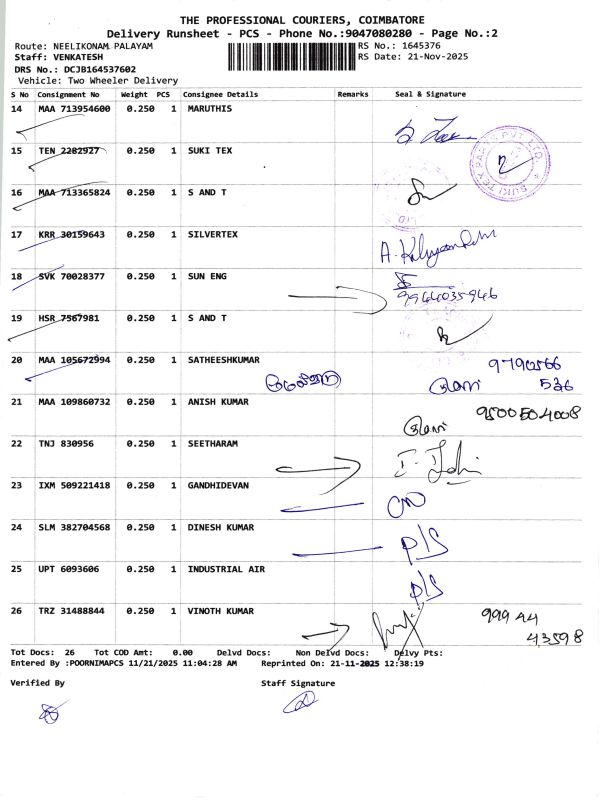 THE PROFESSIONAL COURIERS, COIMBATORE
Delivery Runsheet - PCS - Phone No.:9047080280 - Page No.:2
Route: NEELIKONAM PALAYAM RS No.: 1645376
Staff: VENKATESH RS Date: 21-Nov-2025
DRS No.: DCJB164537602
Vehicle: Two Wheeler Delivery
S No Consignment No Weight PCS Consignee Details Remarks Seal & Signature
14 MAA 713954600 0.250 1 MARUTHIS
15 TEN 2282927 0.250 1 SUKI TEX
16 MAA 713365824 0.250 1 S AND T
17 KRR 30159643 0.250 1 SILVERTEX
18 SVK 70028377 0.250 1 SUN ENG
9944035946
19 HSR 7567981 0.250 1 S AND T
20 MAA 105672994 0.250 1 SATHEESHKUMAR
9790566
536
21 MAA 109860732 0.250 1 ANISH KUMAR
9500504008
22 TNJ 830956 0.250 1 SEETHARAM
23 IXM 509221418 0.250 1 GANDHIDEVAN
24 SLM 382704568 0.250 1 DINESH KUMAR
P/S
25 UPT 6093606 0.250 1 INDUSTRIAL AIR
P/S
26 TRZ 31488844 0.250 1 VINOTH KUMAR
999 44
43598
Tot Docs: 26 Tot COD Amt: 0.00 Delvd Docs: Non Delvd Docs: Delvy Pts:
Entered By :POORNIMAPCS 11/21/2025 11:04:28 AM Reprinted On: 21-11-2025 12:38:19
Verified By Staff Signature